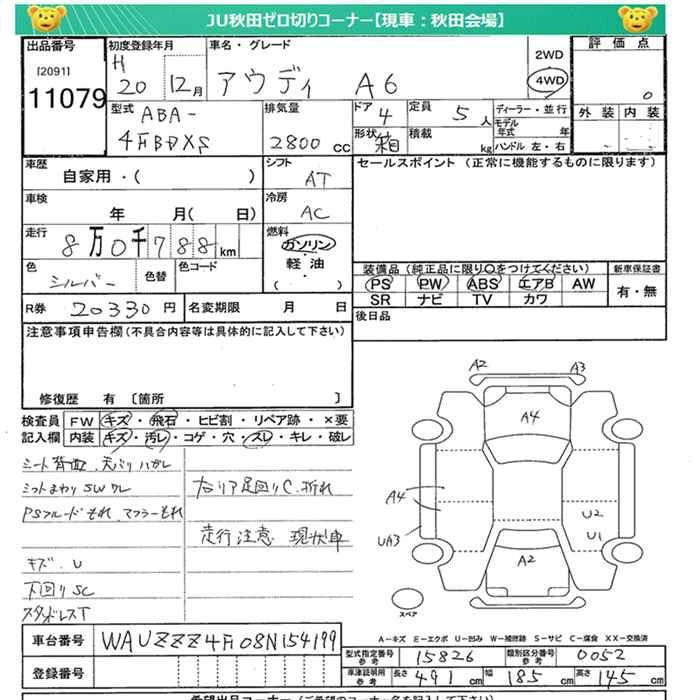 JU秋田ゼロ切りコーナー【現車：秋田会場】
出品番号
[2091]
11079
初度登録年月
H 20 12月
車名・グレード
アウディ A6
2WD
4WD
評価点
0
外装 内装
型式
ABA-
排気量
2800 cc
ドア
4
定員
5人
ディーラー・並行
モデル年式 年
形状
箱
積載 kg
ハンドル 左・右
車歴
自家用・( )
シフト
AT
セールスポイント (正常に機能するものに限ります)
車検
年 月( 日)
冷房
AC
走行
8万0千788km
燃料
ガソリン・軽油・( )
色
シルバー
色替
色コード
装備品 (純正品に限り○をつけてください)
新車保証書
PS PW ABS エアB AW
有・無
SR ナビ TV カワ
R券
20330円
名変期限 月 日
後日品
注意事項申告欄(不具合内容等は具体的に記入して下さい)
修復歴 有 〔箇所 〕
検査員記入欄
FW キズ・飛石・ヒビ割・リペア跡・×要
内装 キズ・汚レ・コゲ・穴・スレ・キレ・破レ
天バリハガレ
PSフルードもれ、マフラーもれ
キズ、U
下回りSC
スタッドレスT
右リア足回りC、折れ
走行注意 現状車
A2
A3
A4
A4
UA3
U2
U1
A2
スペア
A－キズ E－エクボ U－凹み W－補修跡 S－サビ C－腐食 XX－交換済
車台番号
WAUZZZ4F08N154199
登録番号
型式指定番号 参考
15826
類別区分番号 参考
0052
車津記録 参考
長さ 491 cm
幅 185 cm
高さ 145 cm
希望出品コーナー(ご希望のコーナー名を記入して下さい)